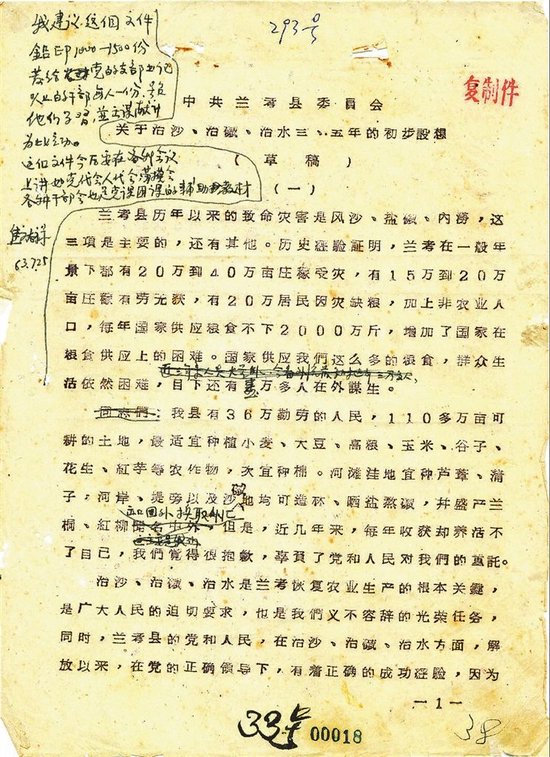 我建议这個文件
鉛印1000—1500份
发给党的支部书记
以上的干部每人一份，
他们学習，
为此
这個文件今后要在各种会议
上讲如党代会人代会
各种干部会也是党课团课的輔助教材
焦裕禄
63.7.25
293号
复制件
中共兰考县委員会
关于治沙、治碱、治水三、五年的初步設想
（草稿）
（一）
兰考县历年以来的致命灾害是风沙、盐碱、内涝，这
三項是主要的，还有其他。历史經驗証明，兰考在一般年
景下都有20万到40万亩庄稼受灾，有15万到20万
亩庄稼有劳无获，有20万居民因灾缺粮，加上非农业人
口，每年国家供应粮食不下2000万斤，增加了国家在
粮食供应上的困难。国家供应我們这么多的粮食，群众生
活依然困难，目下还有万多人在外謀生。
同志們：我县有36万勤劳的人民，110多万亩可
耕的土地，最适宜种植小麦、大豆、高粮、玉米、谷子、
花生、紅芋等农作物，次宜种棉。河滩洼地宜种芦葦、蒲
子，河岸、堤旁以及沙地均可造林、晒盐熬硝，并盛产兰
桐、紅柳聞名中外，但是，近几年来，每年收获却养活不
了自己，我們覚得很抱歉，辜負了党和人民对我們的重託。
治沙、治碱、治水是兰考恢复农业生产的根本关鍵，
是广大人民的迫切要求，也是我們义不容辞的光荣任务，
同时，兰考县的党和人民，在治沙、治碱、治水方面，解
放以来，在党的正确領导下，有着正确的成功經驗，因为
—1—
33号 00018
38